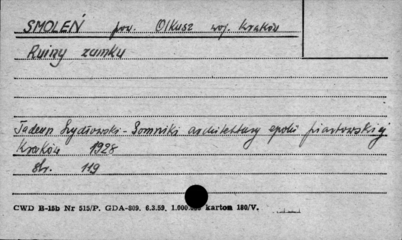 SMOLEŃ pow. Olkusz woj. Kraków
Ruiny zamku
Tadeusz Szydłowski - Pomniki architektury epoki piastowskiej
Kraków 1928
str. 119
CWD B-15b Nr 515/P. GDA-809. 6.3.59. 1.000.000 karton 180/V.